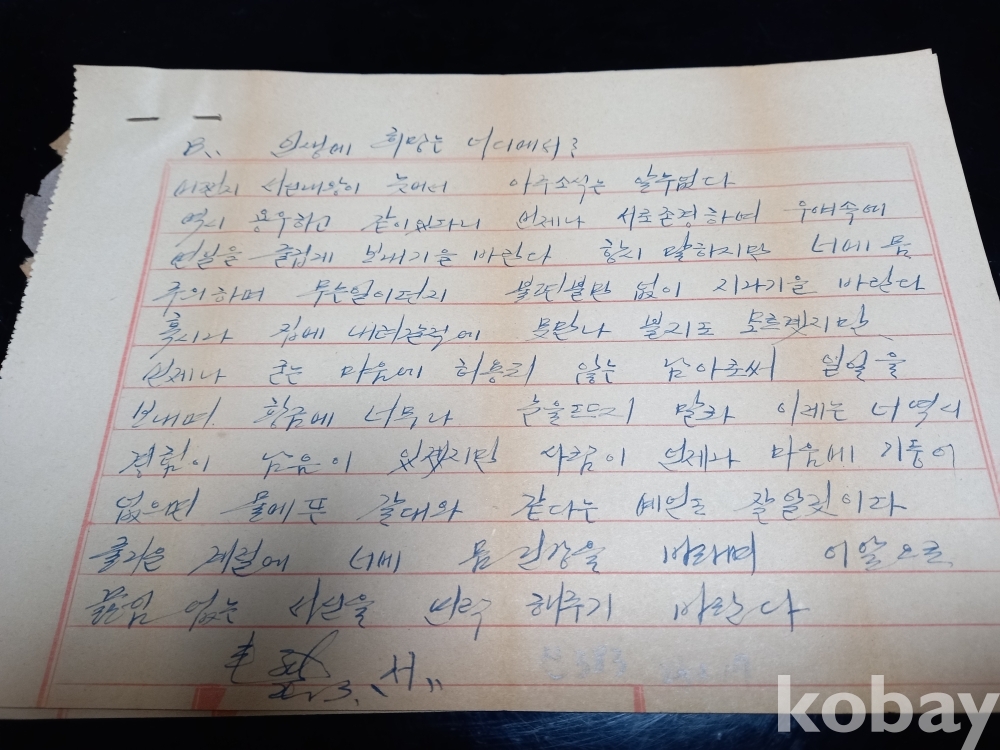 B.. 인생에 희망는 어디에서?
어쩐지 서신내왕이 늦어서 아주소식는 알수없다
역시 용우하고 같이있다니 언제나 서로존경하며 우애속에
번분을 즐겁게 보내기을 바란다 항시 말하지만 너에 몸
주의하며 무슨일이던지 불편불만 없이 지나기을 바란다
혹시나 집에 내려갈적에 못만나 볼지도 모르겠지만
언제나 굳은 마음에 허용치 않는 남아로써 일일을
보내며 황금에 너무나 눈을뜨드지 말라 이제는 너역시
경험이 남음이 있겠지만 사람이 언제나 마음에 기둥이
없으면 물에뜬 갈대와 같다는 예언도 잘알것이라
즐거운 계절에 너에 몸 건강을 바래며 이알으로
끊임 없는 서신을 연락 해주기 바란다
서"
kobay